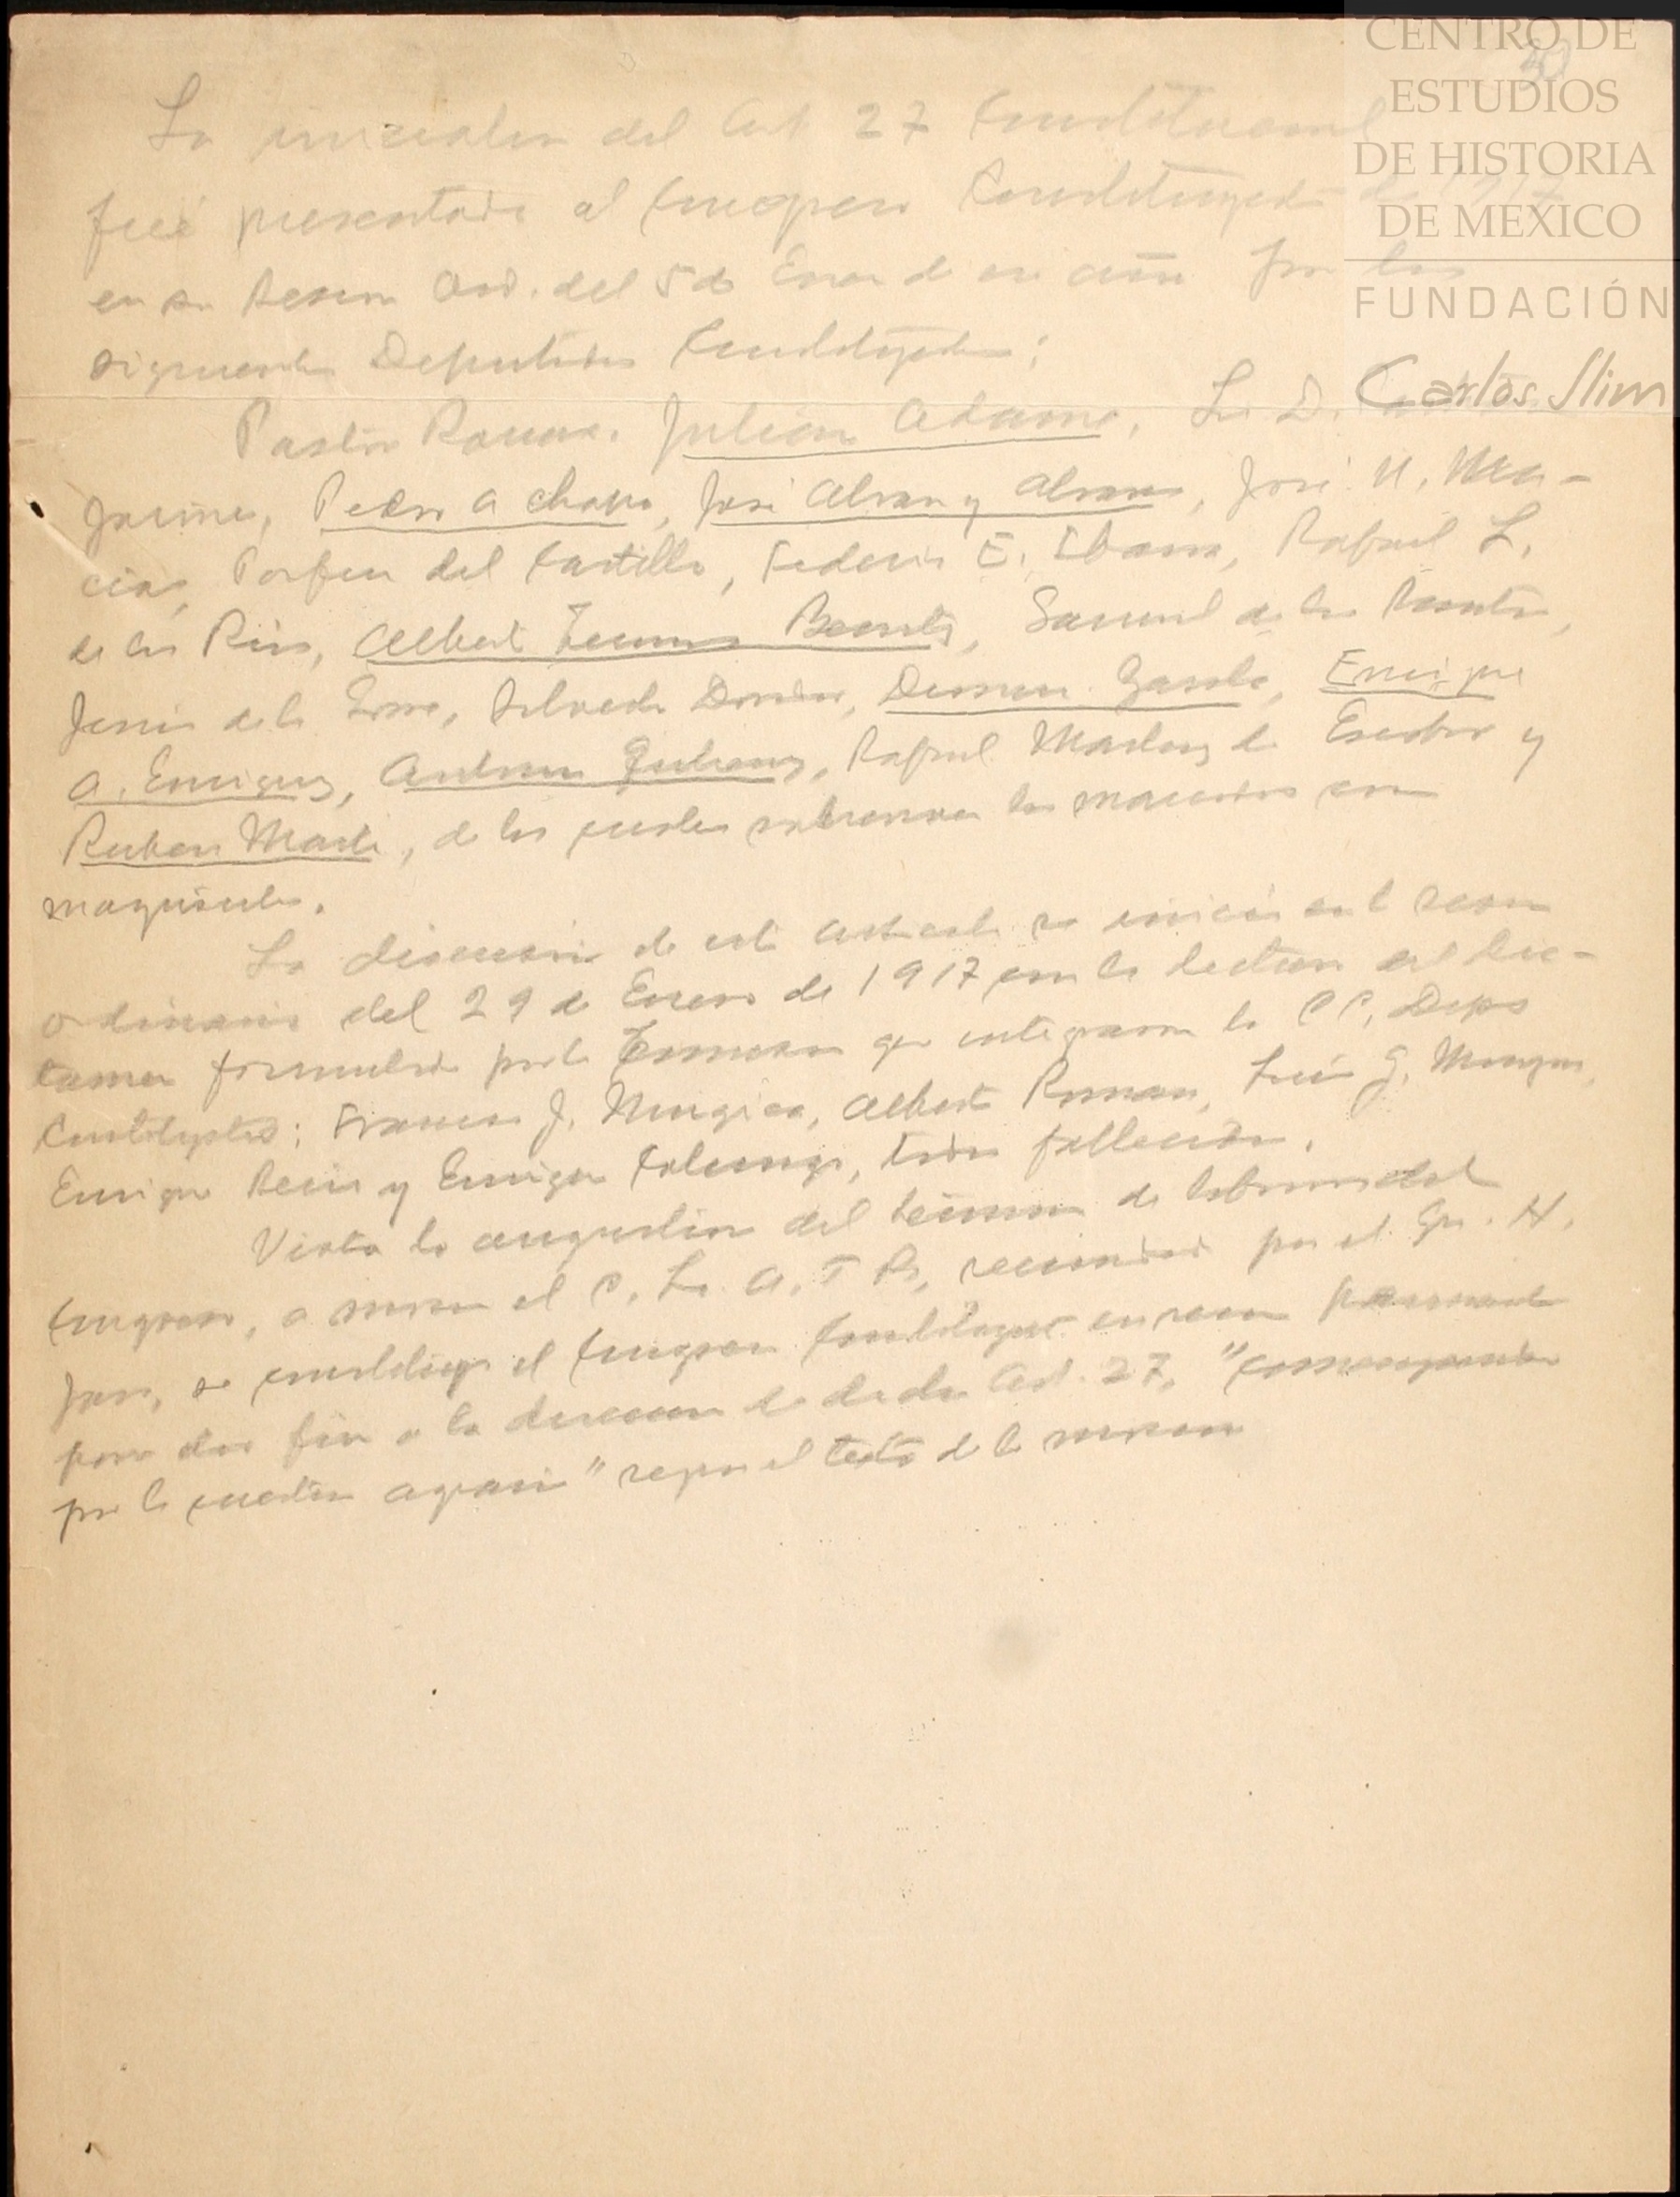 CENTRO DE
ESTUDIOS
DE HISTORIA
DE MEXICO
FUNDACIÓN
Carlos Slim
La iniciativa del Art 27 Constitucional
fué presentada al Congreso Constituyente de 1917
en su Sesion Ord. del 5 de Enero de ese año por los
siguientes Diputados Constituyentes:
Pastor Rouaix. Julian Adame, Lic D.
Jaime, Pedro A Chapa, José Alvarez y Alvarez, José N. Ma-
cias, Porfirio del Castillo, Federico E. Ibarra, Rafael L.
de los Rios, Alberto Terrones Benitez, Samuel de los Santos,
Jesús de la Torre, Silvestre Dorador, Dionisio Zavala, Enrique
A. Enriquez, Antonio Gutierrez, Rafael Martinez de Escobar y
Ruben Marti, de los cuales sobreviven los marcados con
mayúsculas.
La discusion de este articulo se inició en la sesion
ordinaria del 29 de Enero de 1917 con la lectura del Dic-
tamen formulado por la Comision que integraron los CC. Deps
Constituyentes: Francisco J. Mugica, Alberto Roman, Luis G. Monzon,
Enrique Recio y Enrique Colunga, todos fallecidos.
Vista la angustia del término de labores del
Congreso, a mocion el C. Lic. A. T B, secundado por el Gral. H.
Jara, se constituyó el Congreso Constituyente en sesion permanente
para dar fin a la discusion de dicho Art. 27, "comenzando
por la cuestion agraria" segun el texto de la mocion